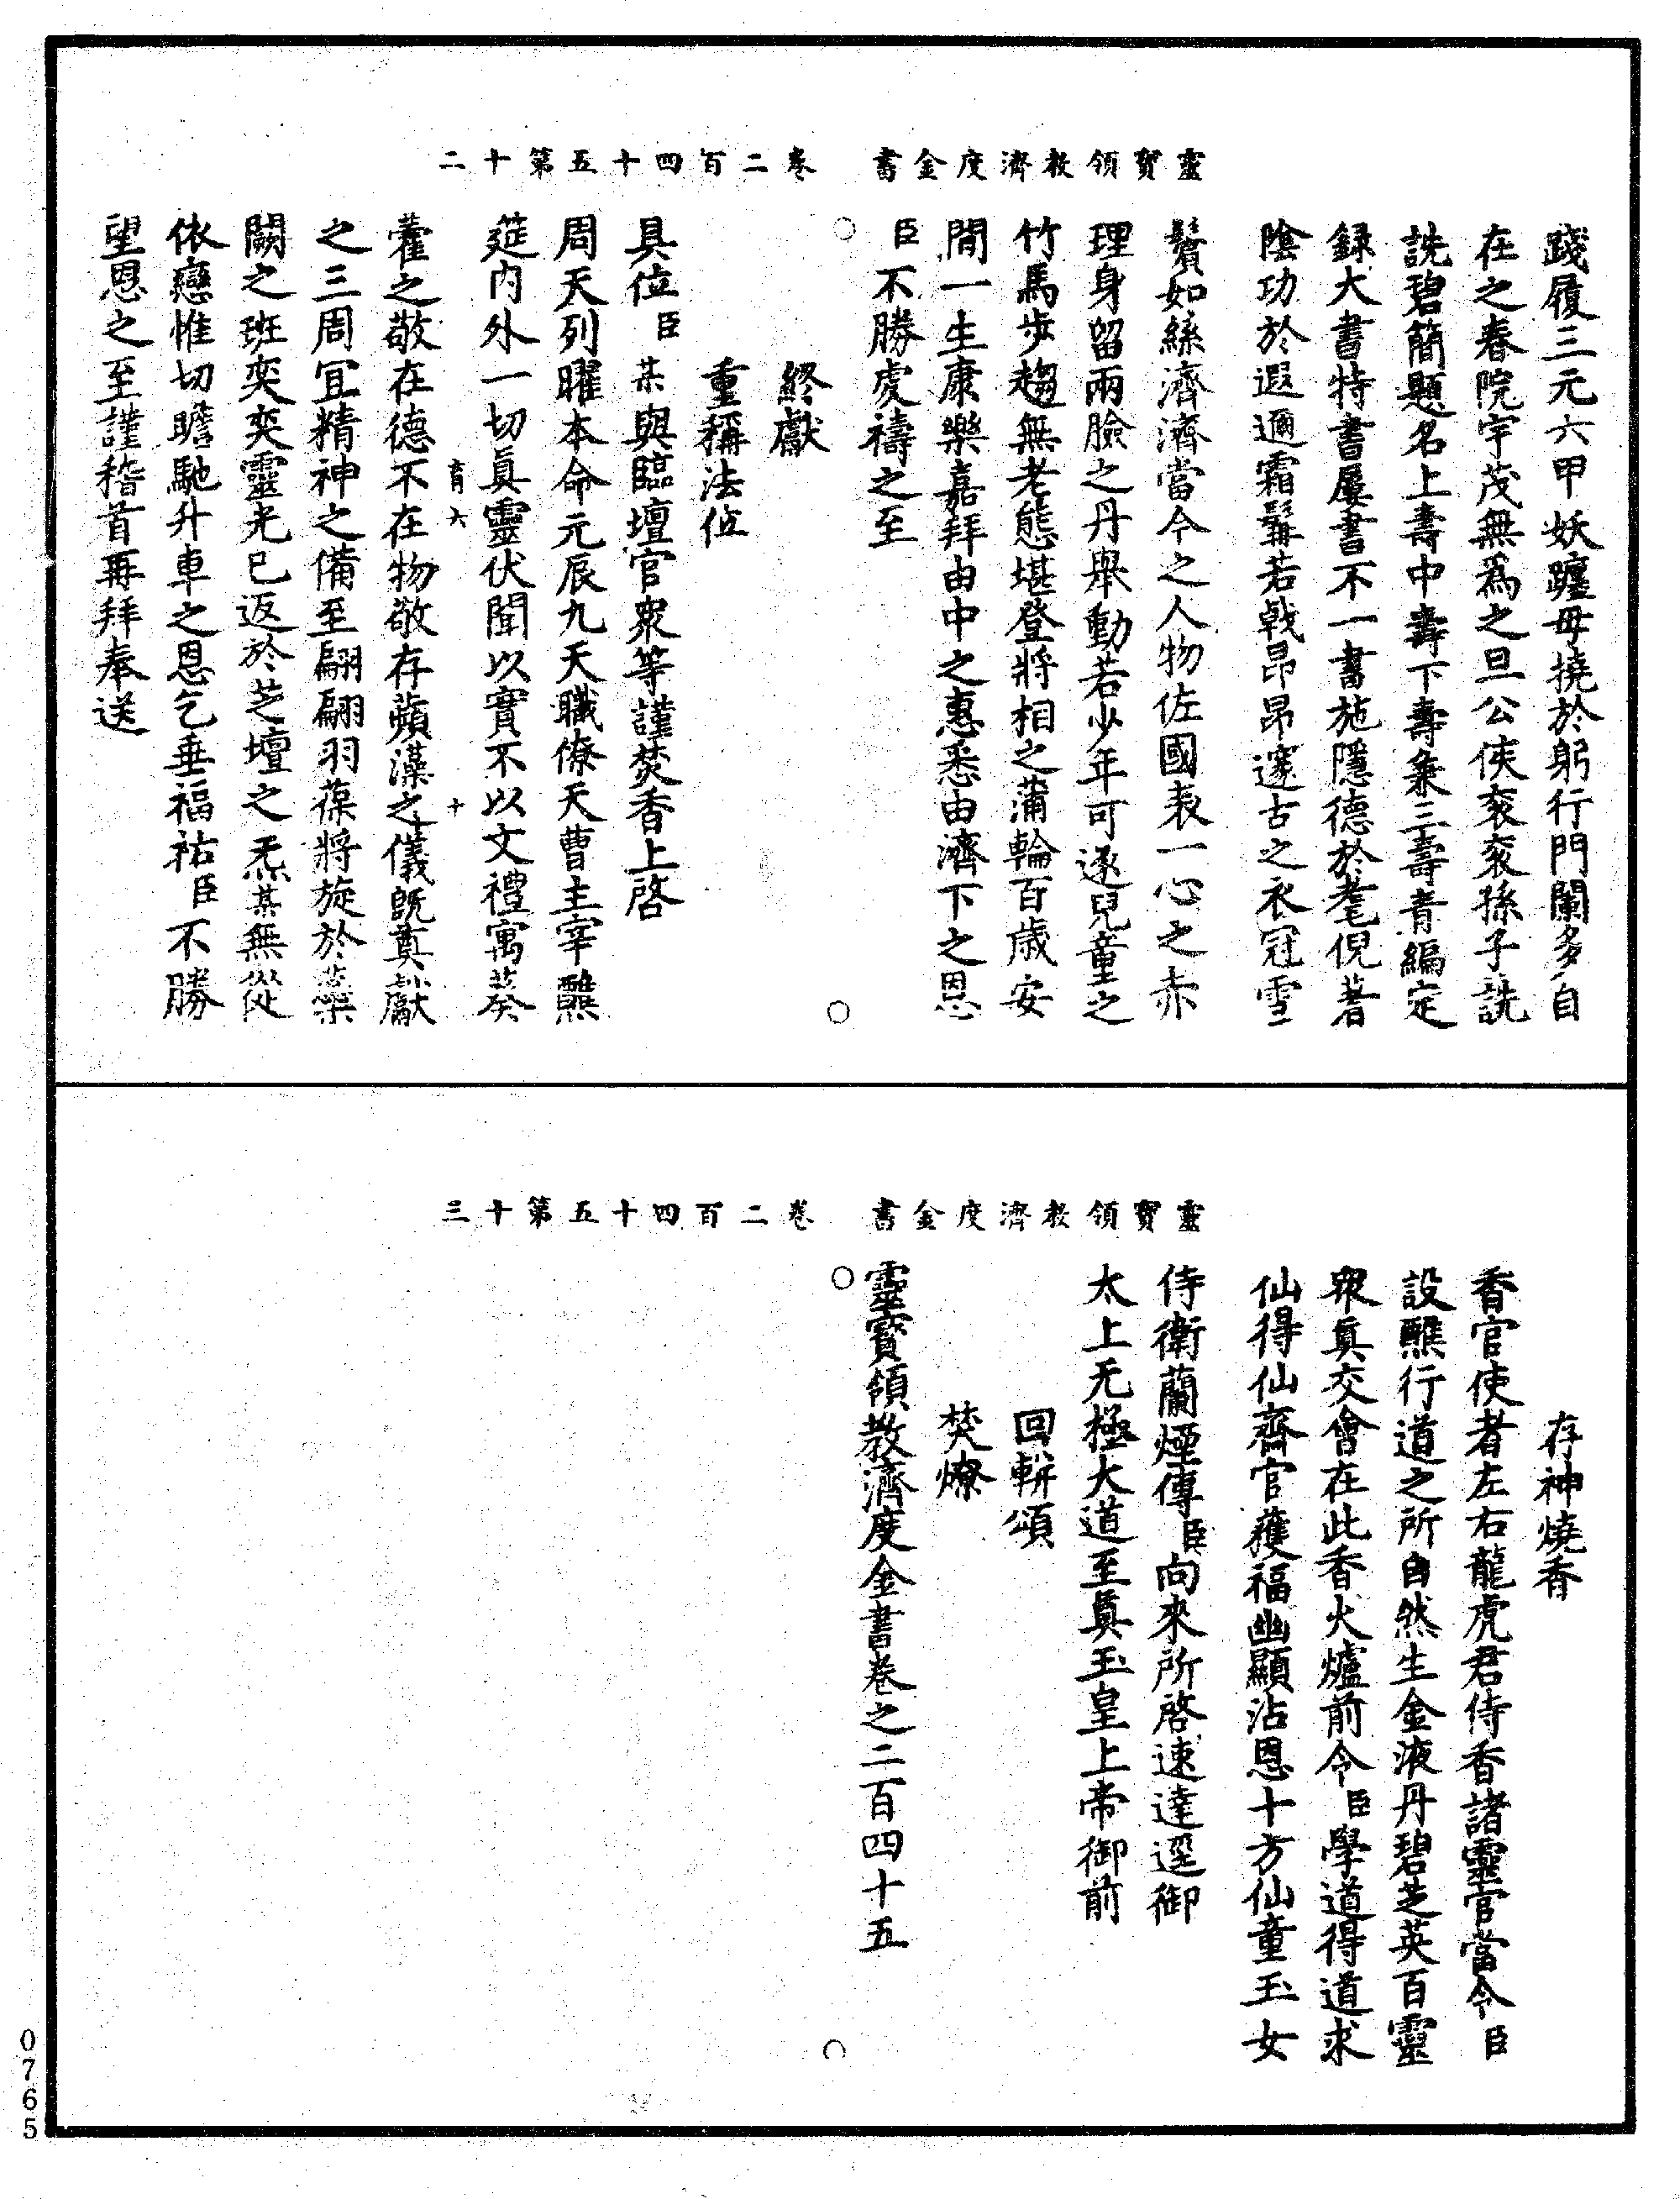 靈寶領教濟度金書　卷二百四十五第十二
踐履三元六甲妖躔毋撓於躬行門闌多自
在之春院宇茂無為之旦公侯衮衮孫子詵
詵碧簡題名上壽中壽下壽兼三壽青編定
録大書特書屢書不一書施隱德於耄倪著
陰功於遐邇霜髯若戟昂昂邃古之衣冠雪
鬢如絲濟濟當今之人物佐國表一心之赤
理身留兩臉之丹舉動若少年可逐兒童之
竹馬步趨無老態堪登將相之蒲輪百歲安
閒一生康樂嘉拜由中之惠悉由濟下之恩
臣不勝虔禱之至
終獻
重稱法位
具位臣某與臨壇官衆等謹焚香上啓
周天列曜本命元辰九天職僚天曹主宰醮
筵内外一切眞靈伏聞以實不以文禮寓葵
育六　十
藿之敬在德不在物敬存蘋藻之儀既奠獻
之三周冝精神之備至翩翩羽葆將旋於蘂
闕之班奕奕靈光已返於芝壇之炁某無從
依戀惟切瞻馳升車之恩乞垂福祐臣不勝
望恩之至謹稽首再拜奉送
靈寶領教濟度金書　卷二百四十五第十三
存神燒香
香官使者左右龍虎君侍香諸靈官當令臣
設醮行道之所自然生金液丹碧芝英百靈
衆眞交會在此香火爐前令臣學道得道求
仙得仙齋官獲福幽顯沾恩十方仙童玉女
侍衛蘭煙傳臣向來所啓速達逕御
太上无極大道至眞玉皇上帝御前
回軿頌
焚燎
靈寳領教濟度金書卷之二百四十五
0765